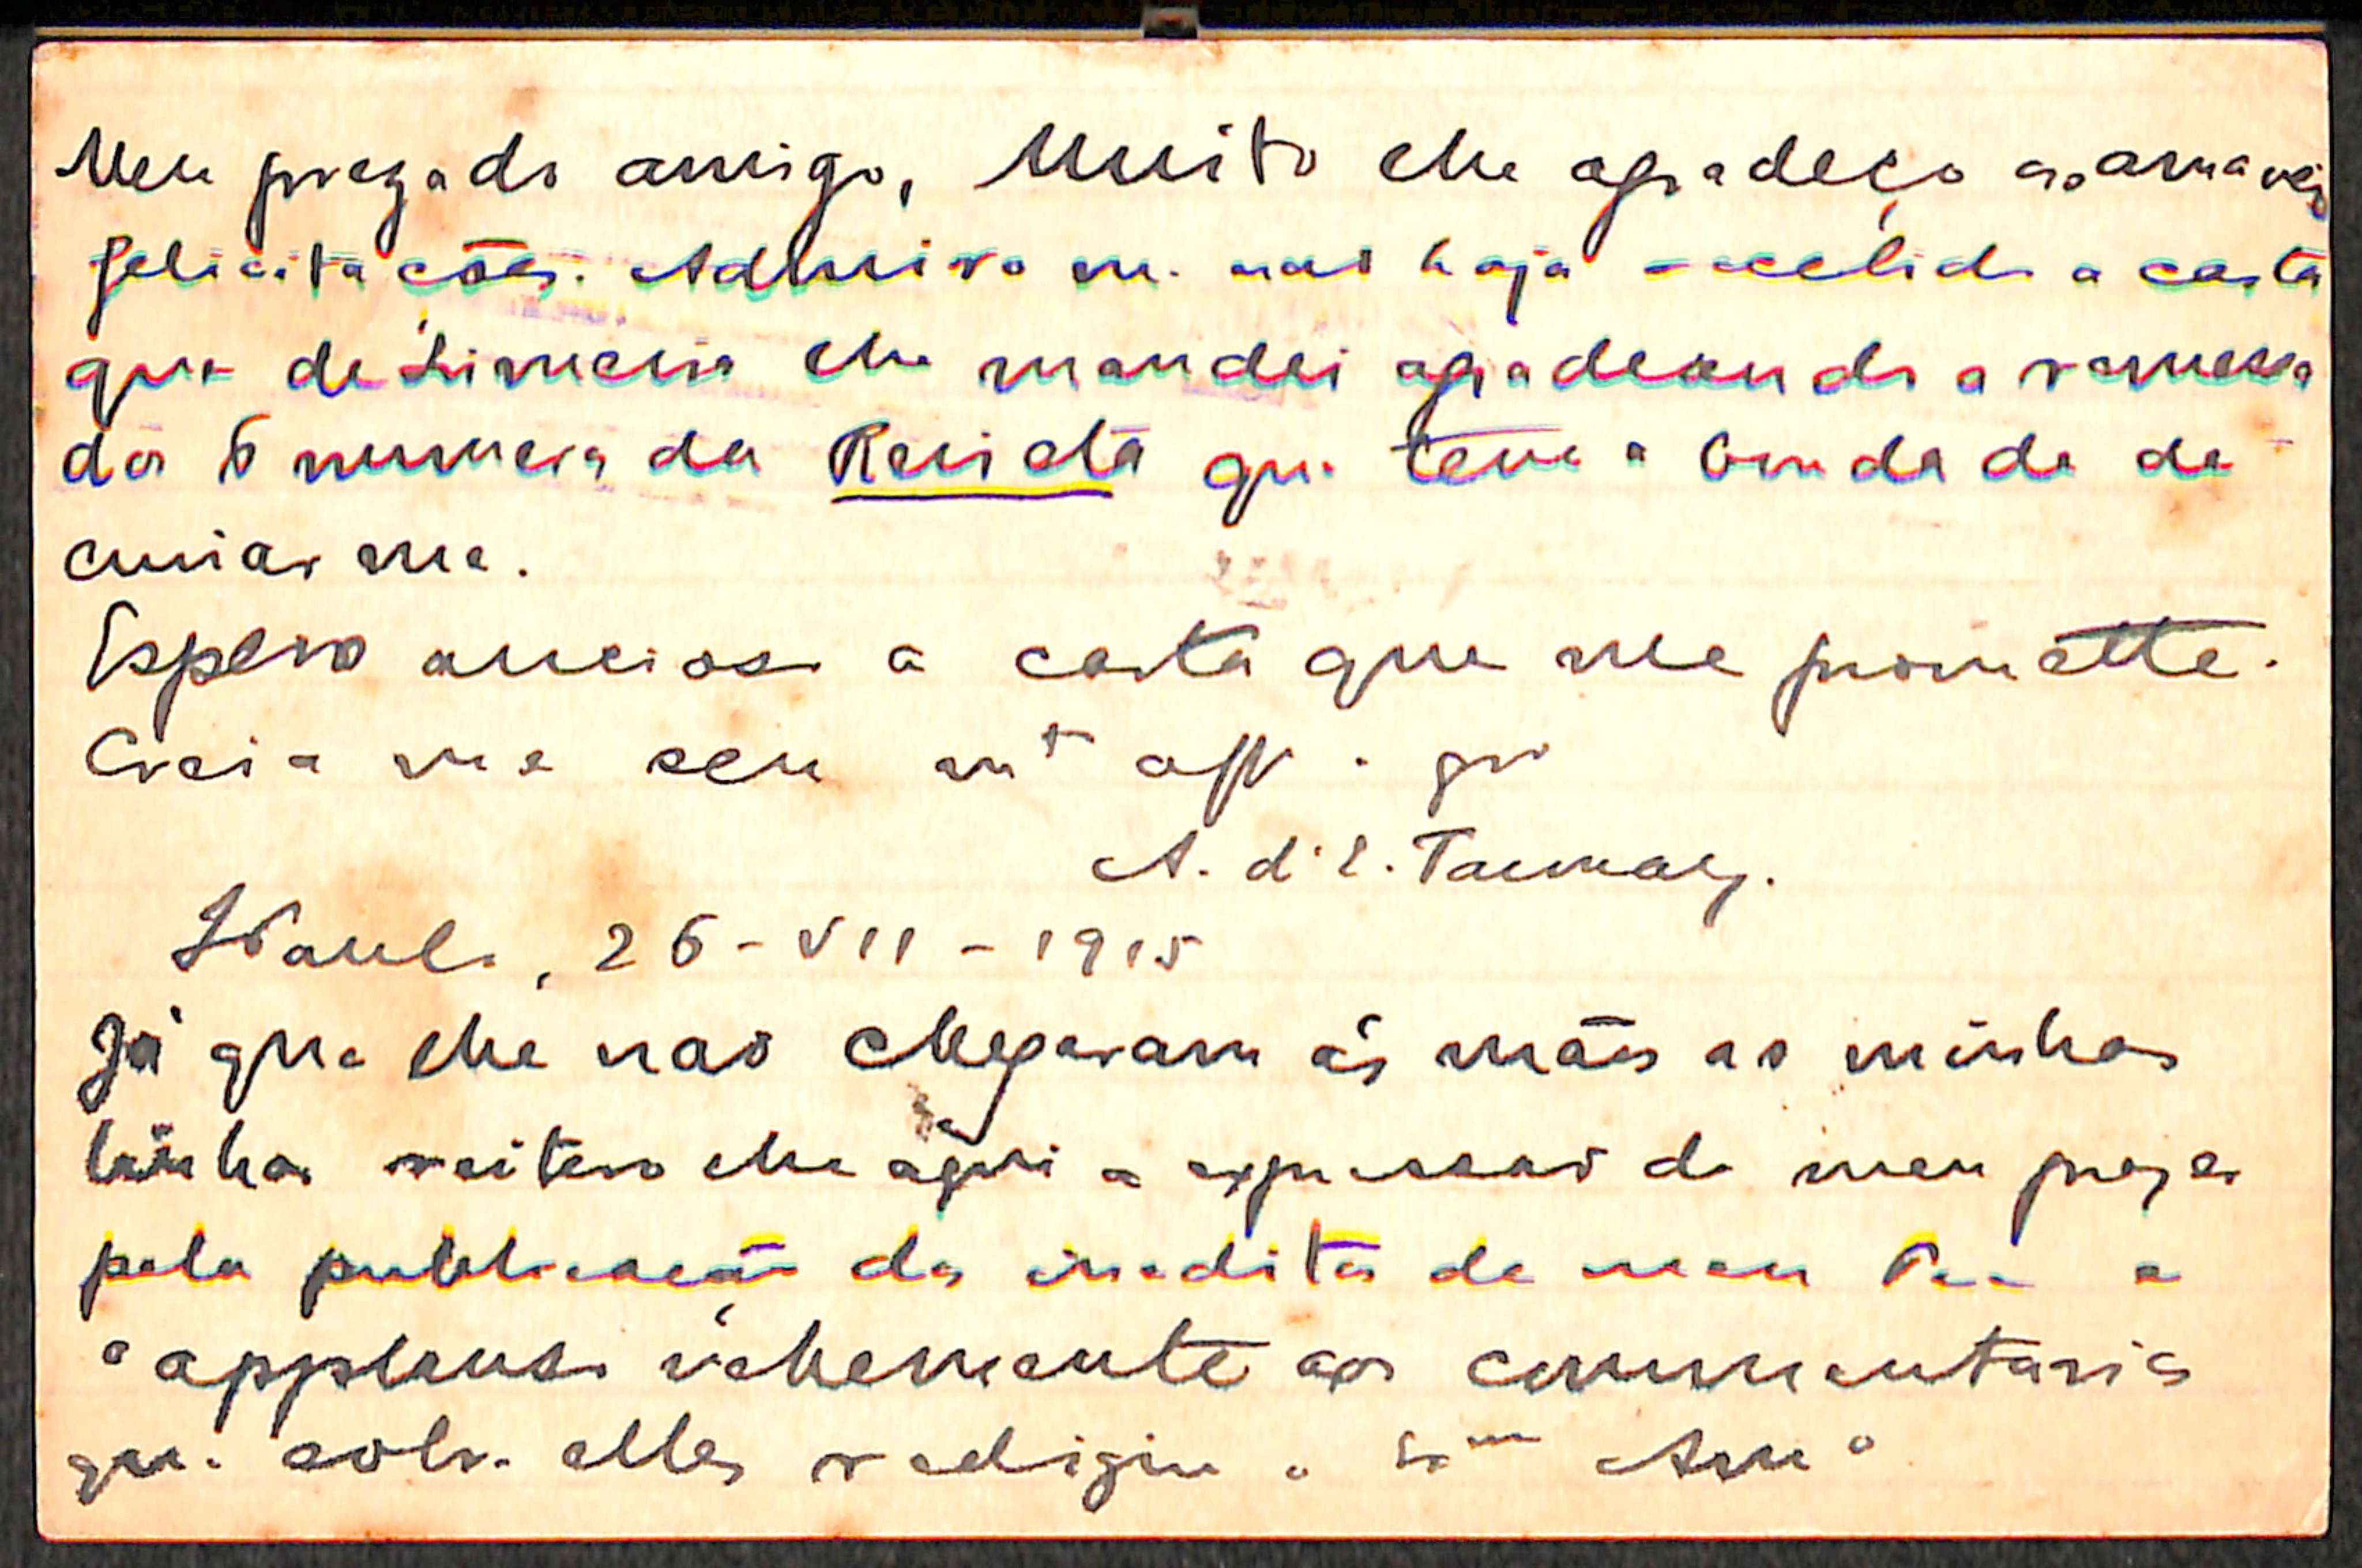 Meu prezado amigo, Muito lhe agradeço as amaveis
felicitações. Admiro m. não haja recebido a carta
que de Limeira lhe mandei agradecendo a remessa
dos 6 numeros da Revista que teve a bondade de
enviar me.
Espero ancioso a carta que me promette.
Creia me seu mto aff. gro
A. d'E. Taunay.
S Paulo, 26-VII-1915
Já que lhe não chegaram ás mãos as minhas
linhas reitero lhe aqui a expressão do meu prazer
pela publicação dos ineditos de meu Pae e
o applauso vehemente aos commentarios
que sobre elles redigiu o Amo